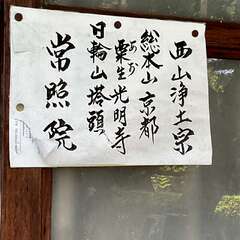 西山浄土宗
総本山 京都
粟生光明寺
あお
日輪山塔頭
常照院